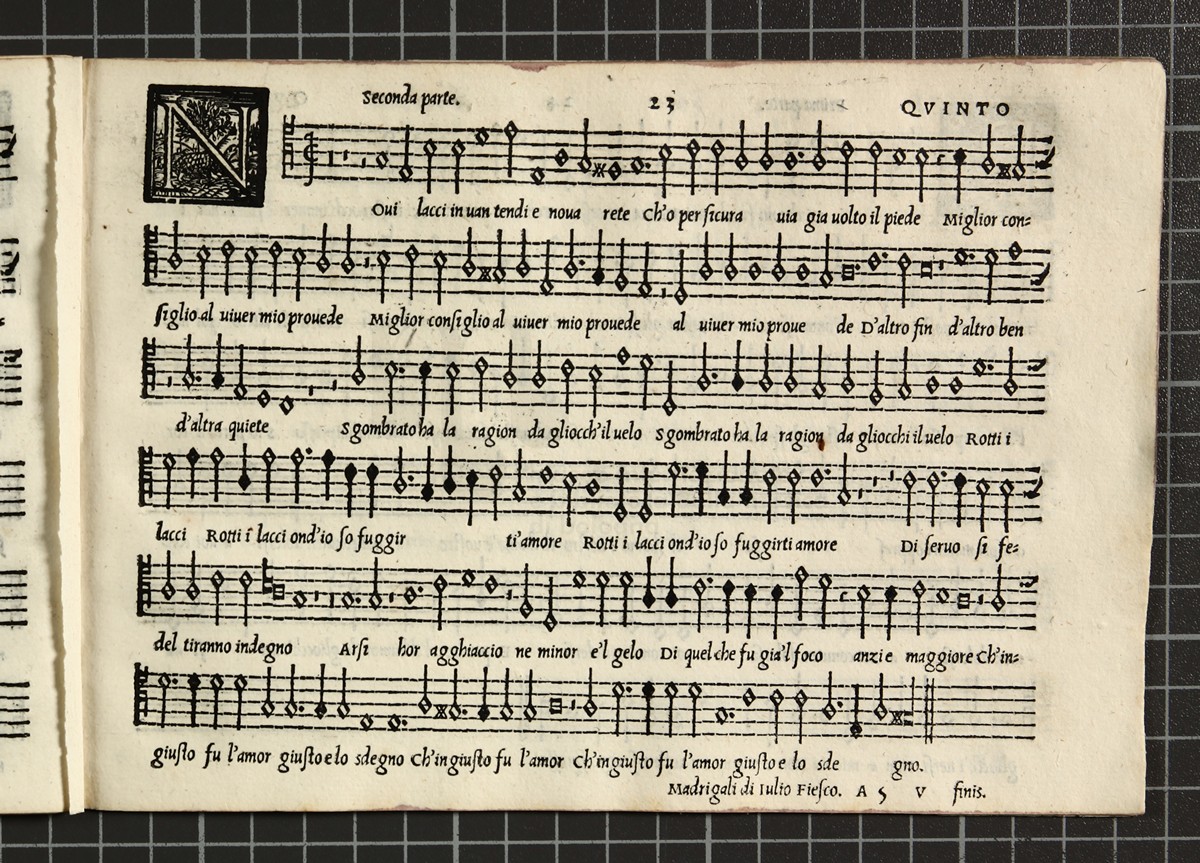 Seconda parte. 23 QVINTO
N
Oui lacci in uan tendi e noua rete Ch'o per sicura uia gia uolto il piede Miglior con=
siglio al uiuer mio prouede Miglior consiglio al uiuer mio prouede al uiuer mio proue de D'altro fin d'altro ben
d'altra quiete Sgombrato ha la ragion da gliocch'il uelo Sgombrato ha la ragion da gliocchi il uelo Rotti i
lacci Rotti i lacci ond'io so fuggir ti'amore Rotti i lacci ond'io so fuggirti amore Di seruo si fe=
del tiranno indegno Arsi hor agghiaccio ne minor e'l gelo Di quel che fu gia'l foco anzi e maggiore Ch'in=
giusto fu l'amor giusto e lo sdegno Ch'ingiusto fu l'amor Ch'ingiusto fu l'amor giusto e lo sde gno.
Madrigali di Iulio Fiesco. A 5 V finis.